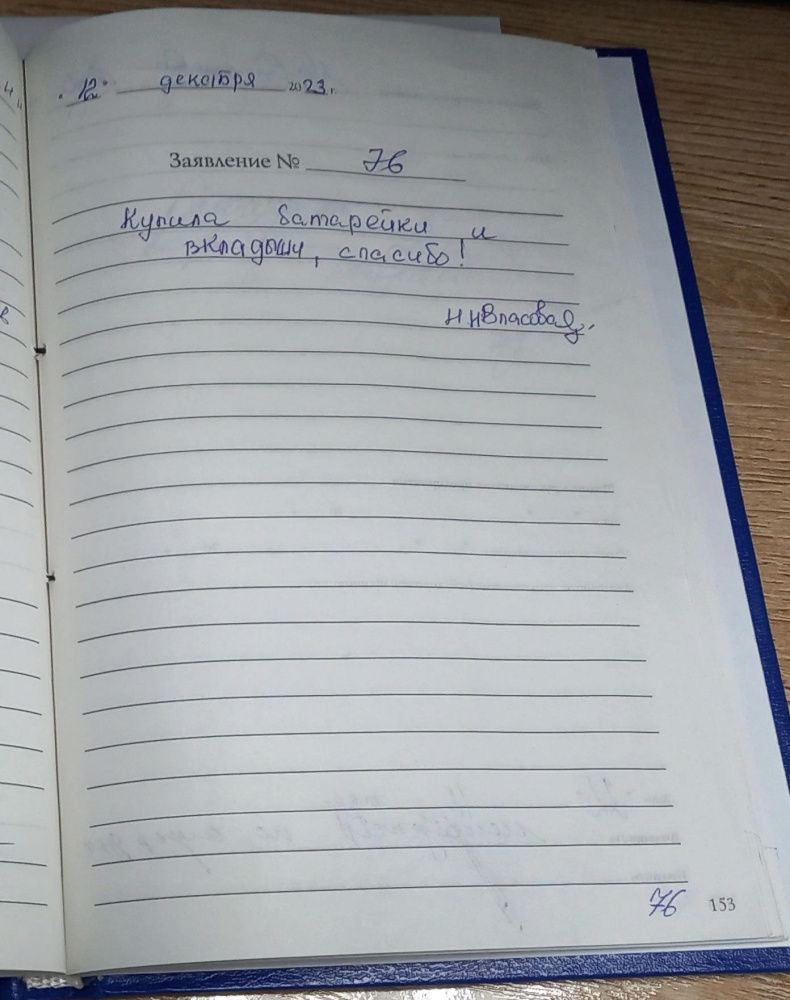 "12" декабря 2023 г.
Заявление № 76
Купила батарейки и
вкладыши, спасибо!
Н Н Власова
76 153